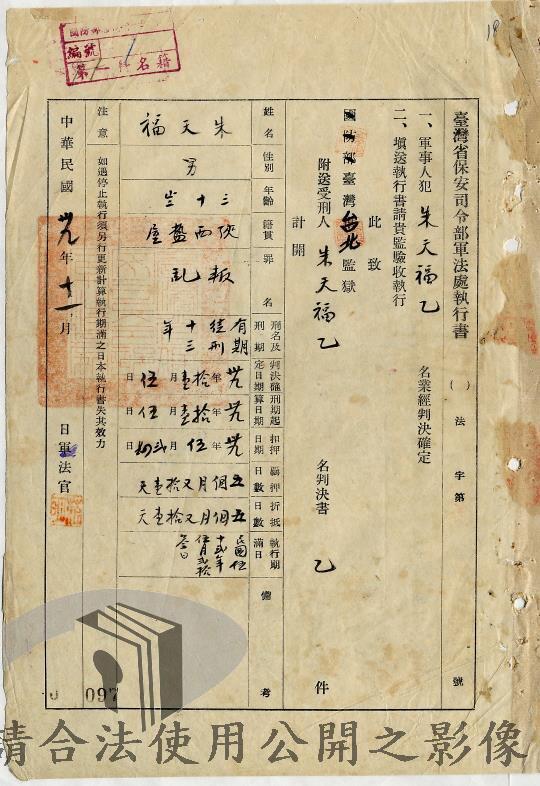 臺灣省保安司令部軍法處執行書
( ) 法 字第 號
一、軍事人犯 朱天福 乙 名業經判決確定
二、填送執行書請貴監驗收執行
此致
國防部臺灣台北監獄
附送受刑人 朱天福 乙 名判決書 乙 件
計開
姓名 性別 年齡 籍貫 罪名 刑名及刑期 判決確定日期 刑期起算日期 扣押日期 羈押日數 折抵日數 執行期滿日 備考
朱天福
男
三十
陝西盩厔
叛亂
有期徒刑十三年
卅九年拾壹月伍日
卅九年拾壹月伍日
卅九年伍月
五個月又拾壹天
五個月又拾壹天
民國伍十弍年伍月弍拾
注意 如遇停止執行須另行更新計算執行期滿之日本執行書失其效力
中華民國 卅九年十一月 日 軍法官
編號
第一 名籍
097
請合法使用公開之影像